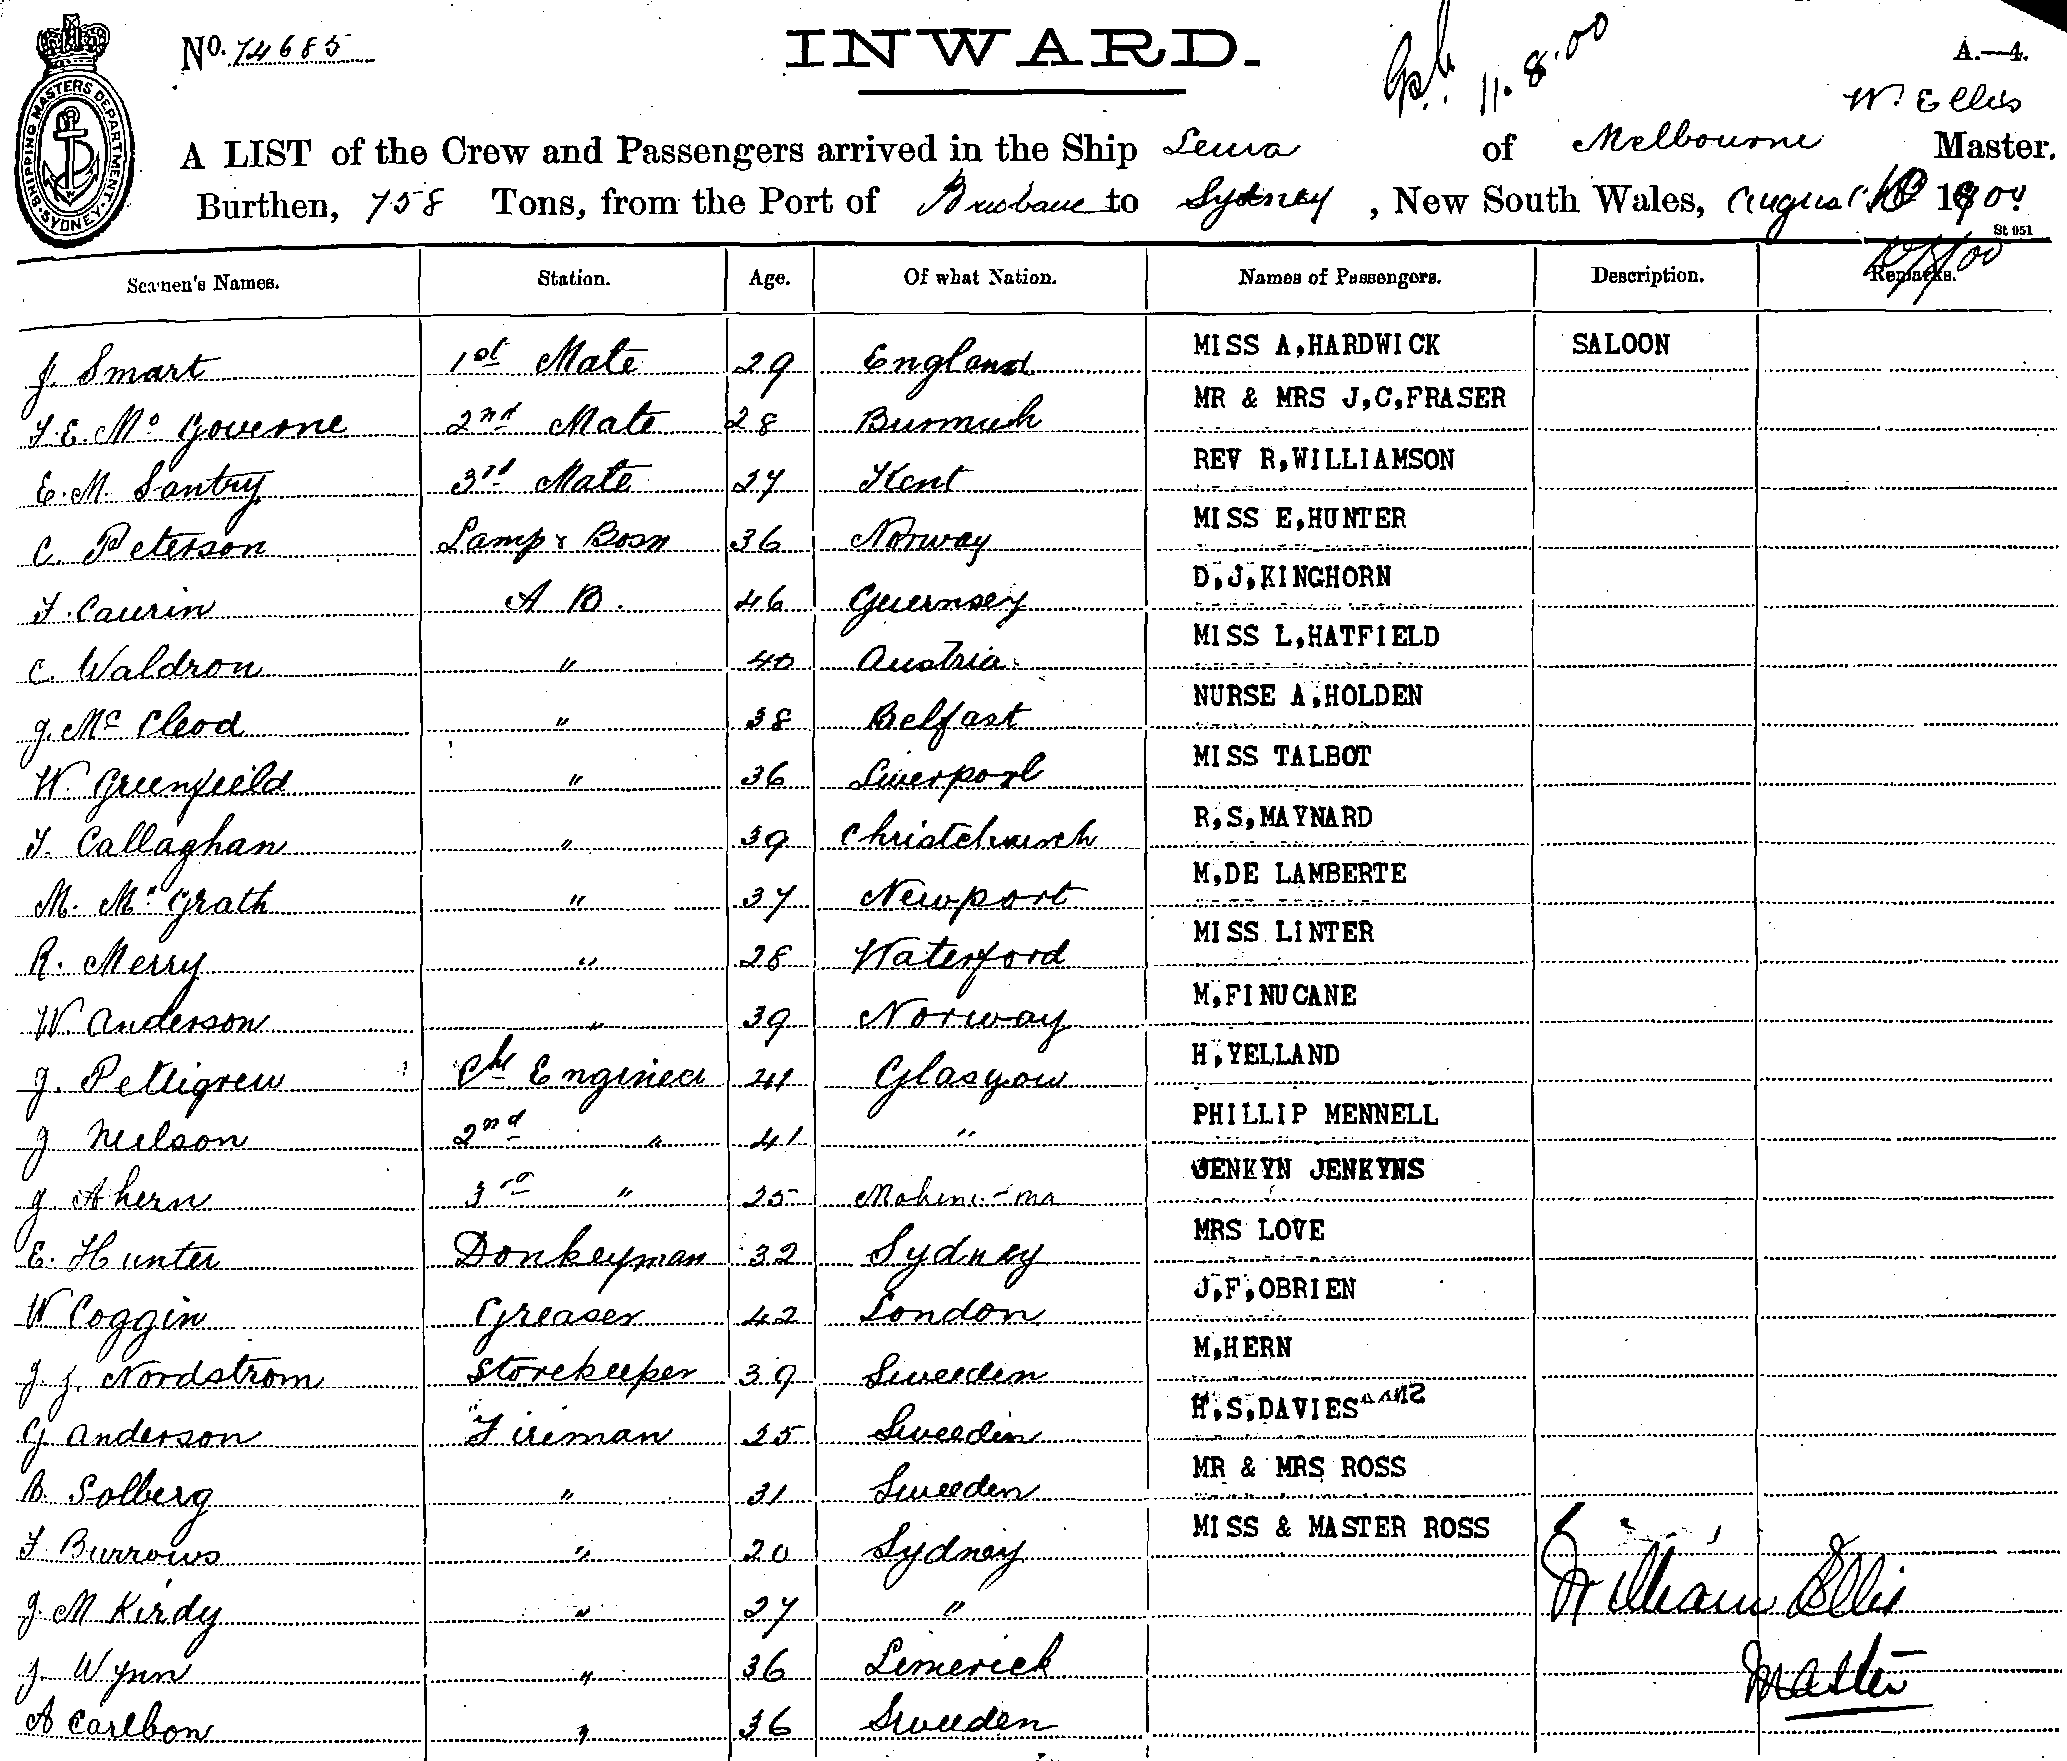 No. 74685
INWARD.
11.8.00
A.—4.
W. Ellis
A LIST of the Crew and Passengers arrived in the Ship Leura of Melbourne Master.
Burthen, 758 Tons, from the Port of Brisbane to Sydney, New South Wales, August 10 1900
St 051
SHIPPING MASTERS DEPARTMENT. SYDNEY.
Seamen's Names. Station. Age. Of what Nation. Names of Passengers. Description. Remarks.
J. Smart 1st Mate 29 England MISS A,HARDWICK SALOON
F.E. Mc Governe 2nd Mate 28 MR & MRS J,C,FRASER
E.M. Santry 3rd Mate 27 Kent REV R,WILLIAMSON
C. Peterson Lamp & Bosn 36 Norway MISS E,HUNTER
F. Caurin A B. 46 Guernsey D,J,KINGHORN
C. Waldron " 40 Austria MISS L,HATFIELD
J. Mc Cleod " 38 Belfast NURSE A,HOLDEN
W. Greenfield " 36 Liverpool MISS TALBOT
T. Callaghan " 39 Christchurch R,S,MAYNARD
M. Mc Grath " 37 Newport M,DE LAMBERTE
R. Merry " 28 Waterford MISS LINTER
W Anderson " 39 Norway M,FINUCANE
J. Pettigrew Chf Engineer 41 Glasgow H,YELLAND
J Neilson 2nd " 41 " PHILLIP MENNELL
J. Ahern 3rd " 25 JENKYN JENKYNS
E. Hunter Donkeyman 32 Sydney MRS LOVE
W Coggin Greaser 42 London J,F,OBRIEN
J. J. Nordstrom Storekeeper 39 Sweeden M,HERN
G Anderson Fireman 25 Sweeden H,S,DAVIES
B. Solberg " 31 Sweeden MR & MRS ROSS
F Burrows " 20 Sydney MISS & MASTER ROSS
J. M Kirdy " 27 "
J. Wynn " 36 Limerick
A Carlbon " 36 Sweeden
William Ellis
Master